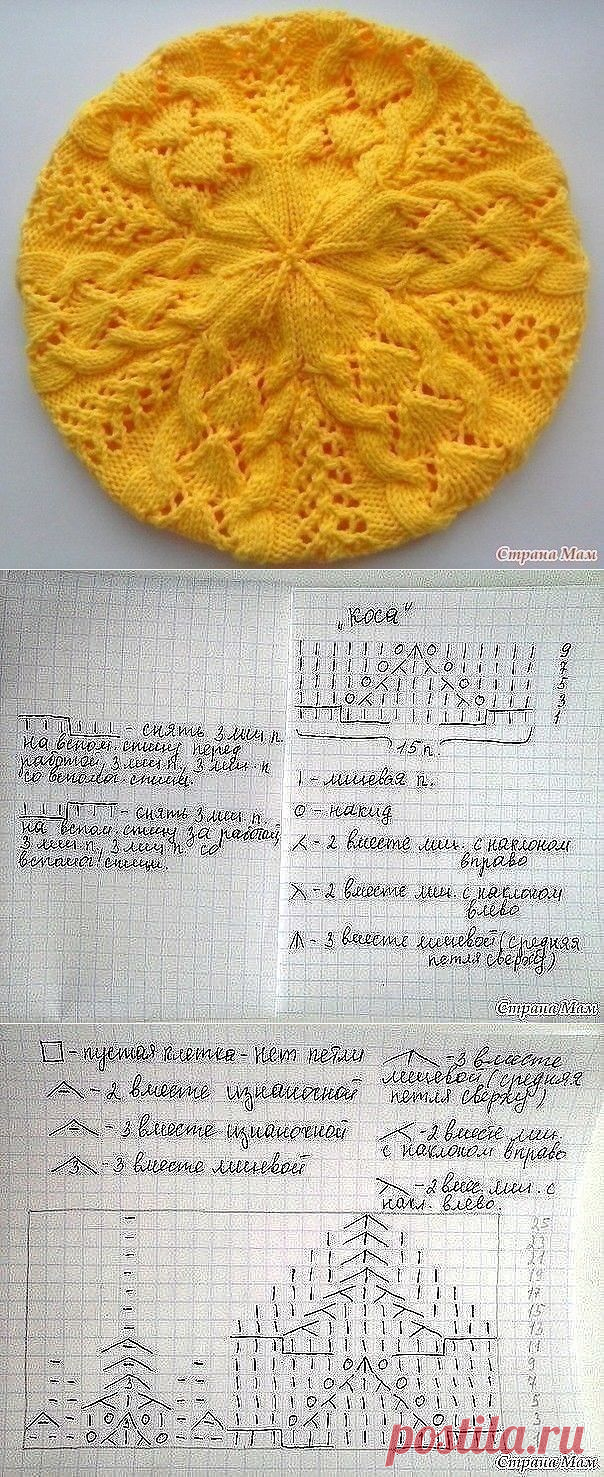 Страна Мам
„Коса“
9
7
5
3
1
15 п.
- снять 3 лиц п.
на вспом. спицу перед
работой, 3 лиц п., 3 лиц. п
со вспомог спицы.
- снять 3 лиц п.
на вспом. спицу за работой,
3 лиц п, 3 лиц п со
вспомог спицы.
| - лицевая п.
О - накид
- 2 вместе лиц. с наклоном
вправо
- 2 вместе лиц. с наклоном
влево
- 3 вместе лицевой (средняя
петля сверху)
Страна Мам
- пустая клетка - нет петли
- 2 вместе изнаночной
- 3 вместе изнаночной
3 - 3 вместе лицевой
- 3 вместе
лицевой (средняя
петля сверху)
- 2 вместе лиц.
с наклоном вправо
- 2 вмес. лиц. с
накл. влево.
25
23
21
19
17
15
13
11
9
7
5
3
postila.ru
Страна Мам